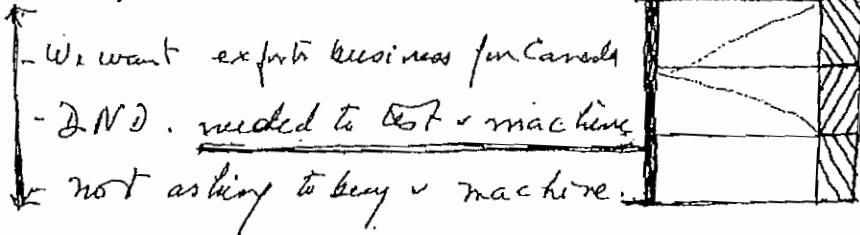 - We want exports business for Canada
- DND. needed to test machine
- not asking to buy machine.